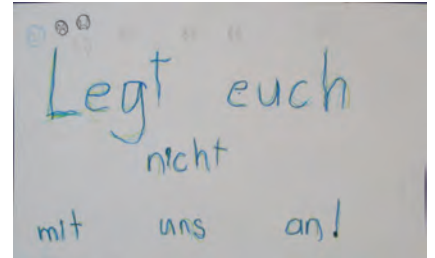 Legt euch
nicht
mit uns an!